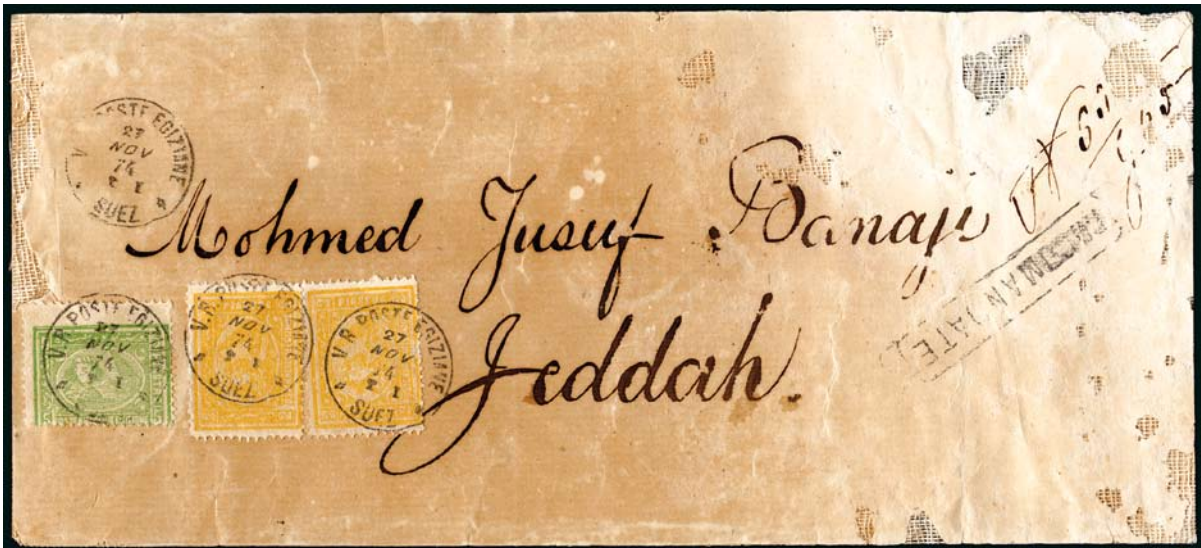 V.R. POSTE EGIZIANE
27
NOV
74
SUEZ
Mohmed Jusuf Banaji
Jeddah.
V.R. POSTE EGIZIANE
27
NOV
74
SUEZ
V.R. POSTE EGIZIANE
27
NOV
74
SUEZ
V.R. POSTE EGIZIANE
27
NOV
74